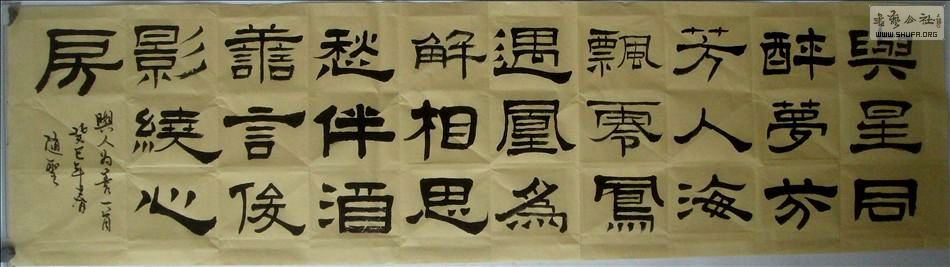 與星同
醉夢亦
芳人海
飄零鳳
遇凰為
解相思
愁伴酒
譱言俊
影繞心
房
與人为善一首
癸巳年春
書藝公社
WWW.SHUFA.ORG